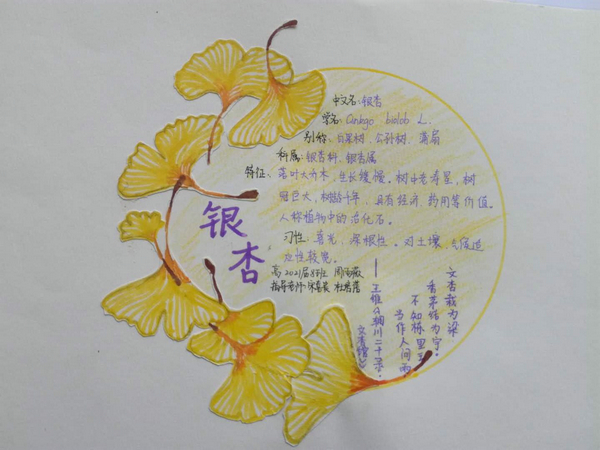 银杏
中文名:银杏
学名:Ginkgo biloba L.
别称:白果树、公孙树、蒲扇
科属:银杏科、银杏属
特征:落叶大乔木,生长缓慢。树中老寿星,树
冠巨大,树龄千年,具有经济、药用等价值。
人称植物中的活化石。
习性:喜光,深根性。对土壤
应性较宽。
高2021届8班 周
指导老师
文杏栽为梁,
香茅结为宇。
不知栋里云,
当作人间雨
——王维《辋川二十景·
文杏馆》